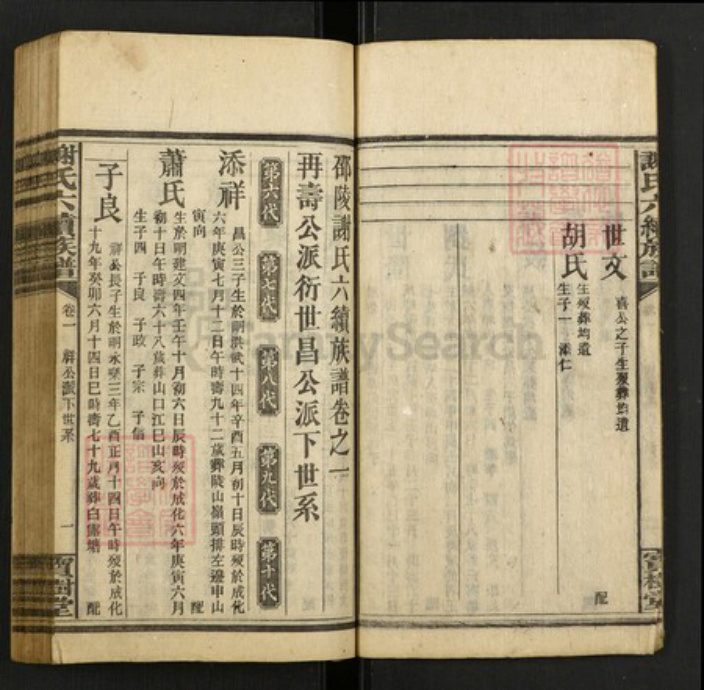 謝氏六續族譜
世文 喜公之子生歿葬均遺 配
胡氏 生歿葬均遺
生子一 添仁
寶樹堂
邵陵謝氏六續族譜卷之一
再壽公派衍世昌公派下世系
第六代 第七代 第八代 第九代 第十代
添祥 昌公三子生於明洪武十四年辛酉五月初十日辰時歿於成化
六年庚寅七月十二日午時壽九十二歲葬陵山嶺頭排左邊申山
寅向 配
蕭氏 生於明建文四年壬午十月初六日辰時歿於成化六年庚寅六月
初十日午時壽六十八歲葬山口江巳山亥向
生子四 子良 子政 子宗 子
子良 祥公長子生於明永樂三年乙酉正月十四日午時歿於成化
十九年癸卯六月十四日巳時壽七十九歲葬白 塘 配
謝氏六續族譜 卷一 祥公派下世系 一 寶樹堂
FamilySearch